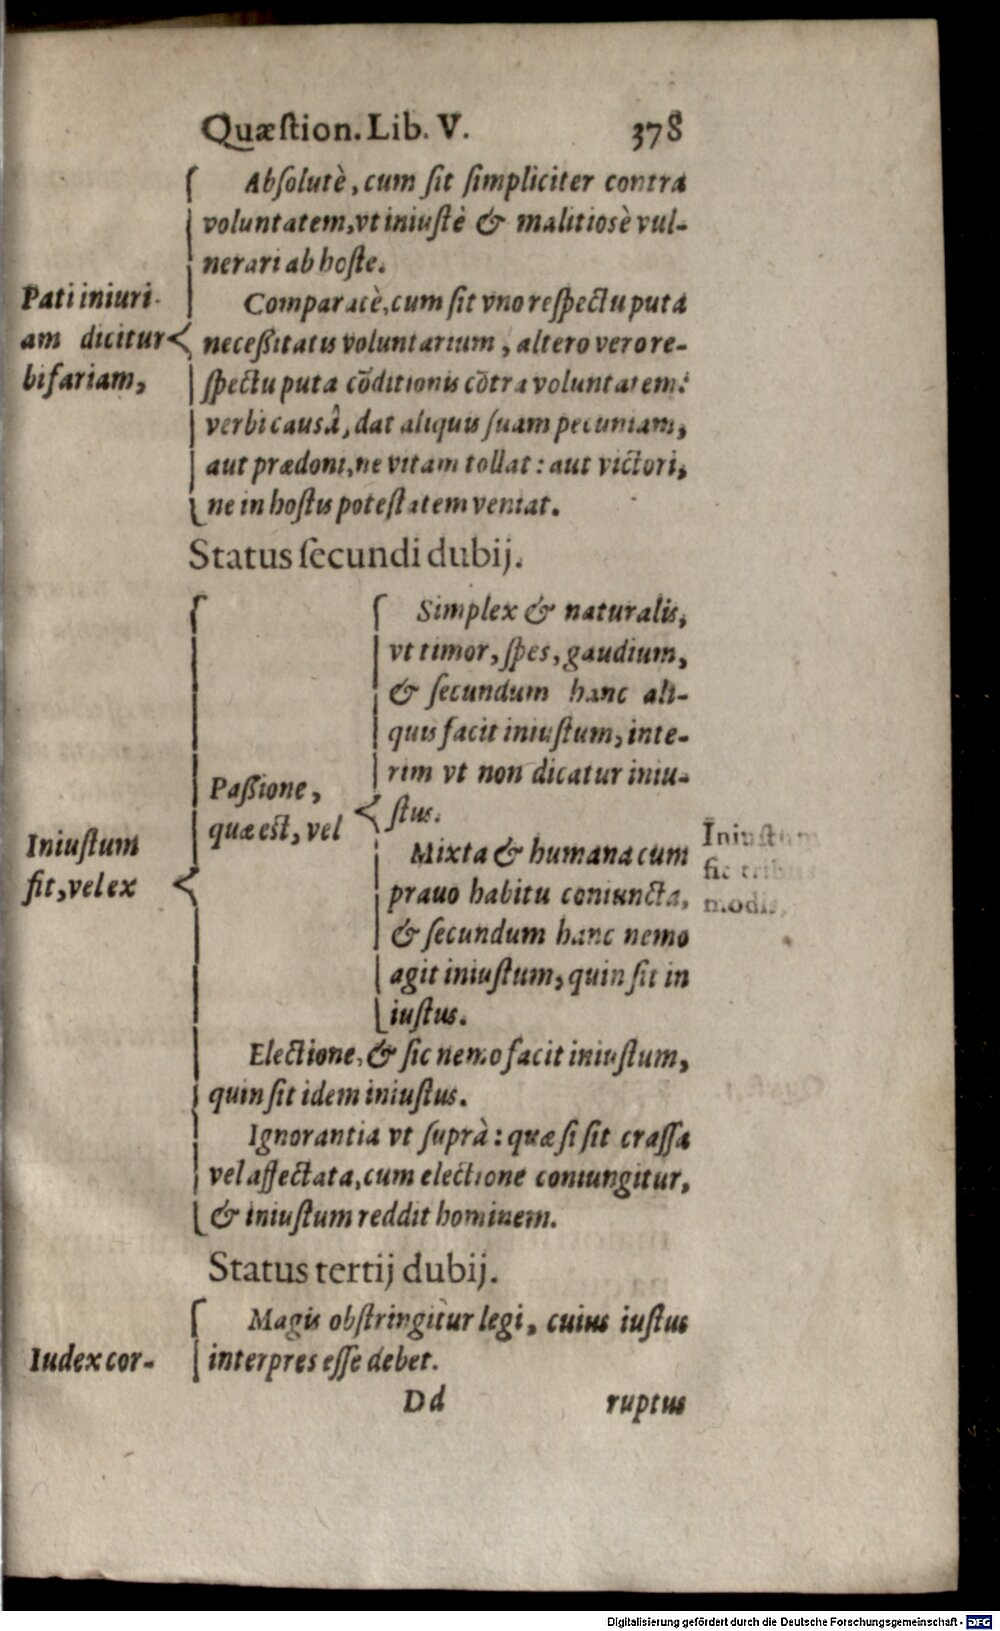 Quæſtion. Lib. V. 378
Pati iniuri-
am dicitur
bifariam,
Abſolutè, cum ſit ſimpliciter contra
voluntatem, vt iniuſtè & malitiosè vul-
nerari ab hoſte.
Comparatè, cum ſit vno reſpectu puta
neceßitatis voluntarium, altero vero re-
ſpectu puta cōditionis cōtra voluntatem:
verbi causâ, dat aliquis ſuam pecuniam,
aut prædoni, ne vitam tollat: aut victori,
ne in hoſtis poteſtatem veniat.
Status ſecundi dubij.
Iniuſtum
fit, vel ex
Paßione,
quæ eſt, vel
Simplex & naturalis,
vt timor, ſpes, gaudium,
& ſecundum hanc ali-
quis facit iniuſtum, inte-
rim vt non dicatur iniu-
ſtus.
Mixta & humana cum
prauo habitu coniuncta,
& ſecundum hanc nemo
agit iniuſtum, quin ſit in
iuſtus.
Iniuſtum
fit tribus
modis,
Electione, & ſic nemo facit iniuſtum,
quin ſit idem iniuſtus.
Ignorantia vt ſuprà: quæ ſi ſit craſſa
vel affectata, cum electione coniungitur,
& iniuſtum reddit hominem.
Status tertij dubij.
Iudex cor-
Magis obſtringitur legi, cuius iuſtus
interpres eſſe debet.
Dd ruptus
Digitalisierung gefördert durch die Deutsche Forschungsgemeinschaft - DFG